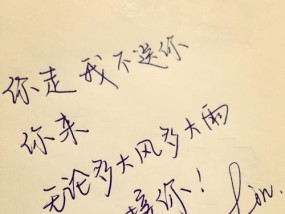 你走 我不送你
你来
无论多大风多大雨
接你！ Lin.